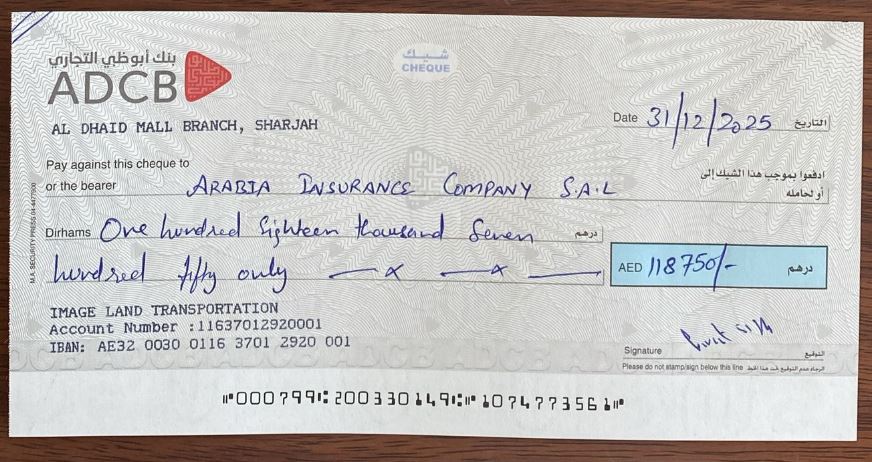 بنك أبوظبي التجاري
ADCB
شيك
CHEQUE
AL DHAID MALL BRANCH, SHARJAH
Date 31/12/2025 التاريخ
Pay against this cheque to ادفعوا بموجب هذا الشيك إلى
or the bearer ARABIA INSURANCE COMPANY S.A.L أو لحامله
Dirhams One hundred Eighteen thousand Seven درهم
hundred fifty only
AED 118750/- درهم
IMAGE LAND TRANSPORTATION
Account Number :11637012920001
IBAN: AE32 0030 0116 3701 2920 001
Signature التوقيع
Please do not stamp/sign below this line الرجاء عدم التوقيع تحت هذا الخط
⑈000799⑆200330149⑆⑈1074773561⑈